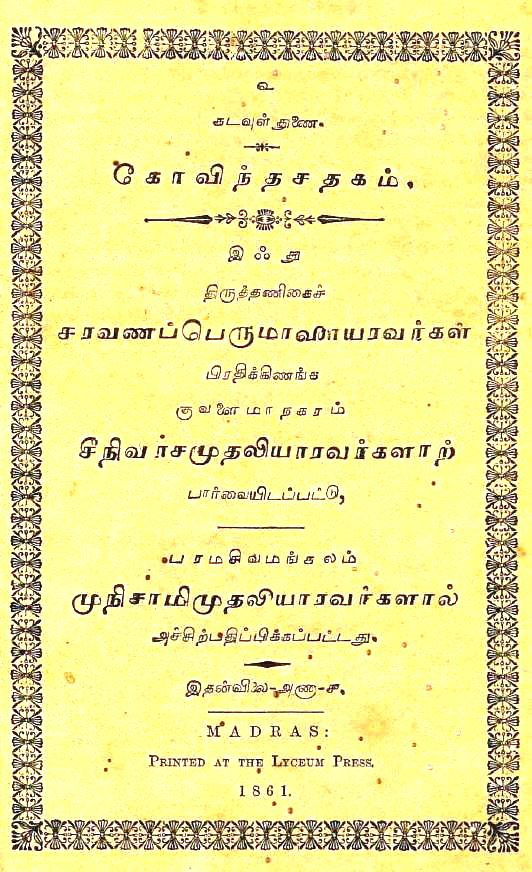 உ
கடவுள் துணை.
கோவிந்தசதகம்,
இஃது
திருத்தணிகைச்
சரவணப்பெருமாளையரவர்கள்
பிரதிக்கிணங்க
குவளைமாநகரம்
சீநிவாசமுதலியாரவர்களாற்
பார்வையிடப்பட்டு,
பரமசிவமங்கலம்
முநிசாமிமுதலியாரவர்களால்
அச்சிற்பதிப்பிக்கப்பட்டது.
இதன்விலை-அணா-
MADRAS:
PRINTED AT THE LYCEUM PRESS.
1861.